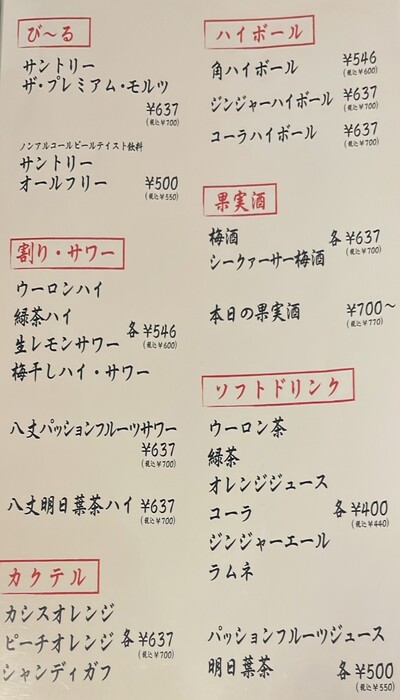 びーる
サントリー
ザ・プレミアム・モルツ
¥637
(税込¥700)
ノンアルコールビールテイスト飲料
サントリー
オールフリー ¥500
(税込¥550)
割り・サワー
ウーロンハイ
緑茶ハイ
生レモンサワー 各¥546
(税込¥600)
梅干しハイ・サワー
八丈パッションフルーツサワー
¥637
(税込¥700)
八丈明日葉茶ハイ ¥637
(税込¥700)
カクテル
カシスオレンジ
ピーチオレンジ 各¥637
(税込¥700)
シャンディガフ
ハイボール
角ハイボール ¥546
(税込¥600)
ジンジャーハイボール ¥637
(税込¥700)
コーラハイボール ¥637
(税込¥700)
果実酒
梅酒 各¥637
(税込¥700)
シークァーサー梅酒
本日の果実酒 ¥700〜
(税込¥770)
ソフトドリンク
ウーロン茶
緑茶
オレンジジュース
コーラ 各¥400
(税込¥440)
ジンジャーエール
ラムネ
パッションフルーツジュース
明日葉茶 各¥500
(税込¥550)